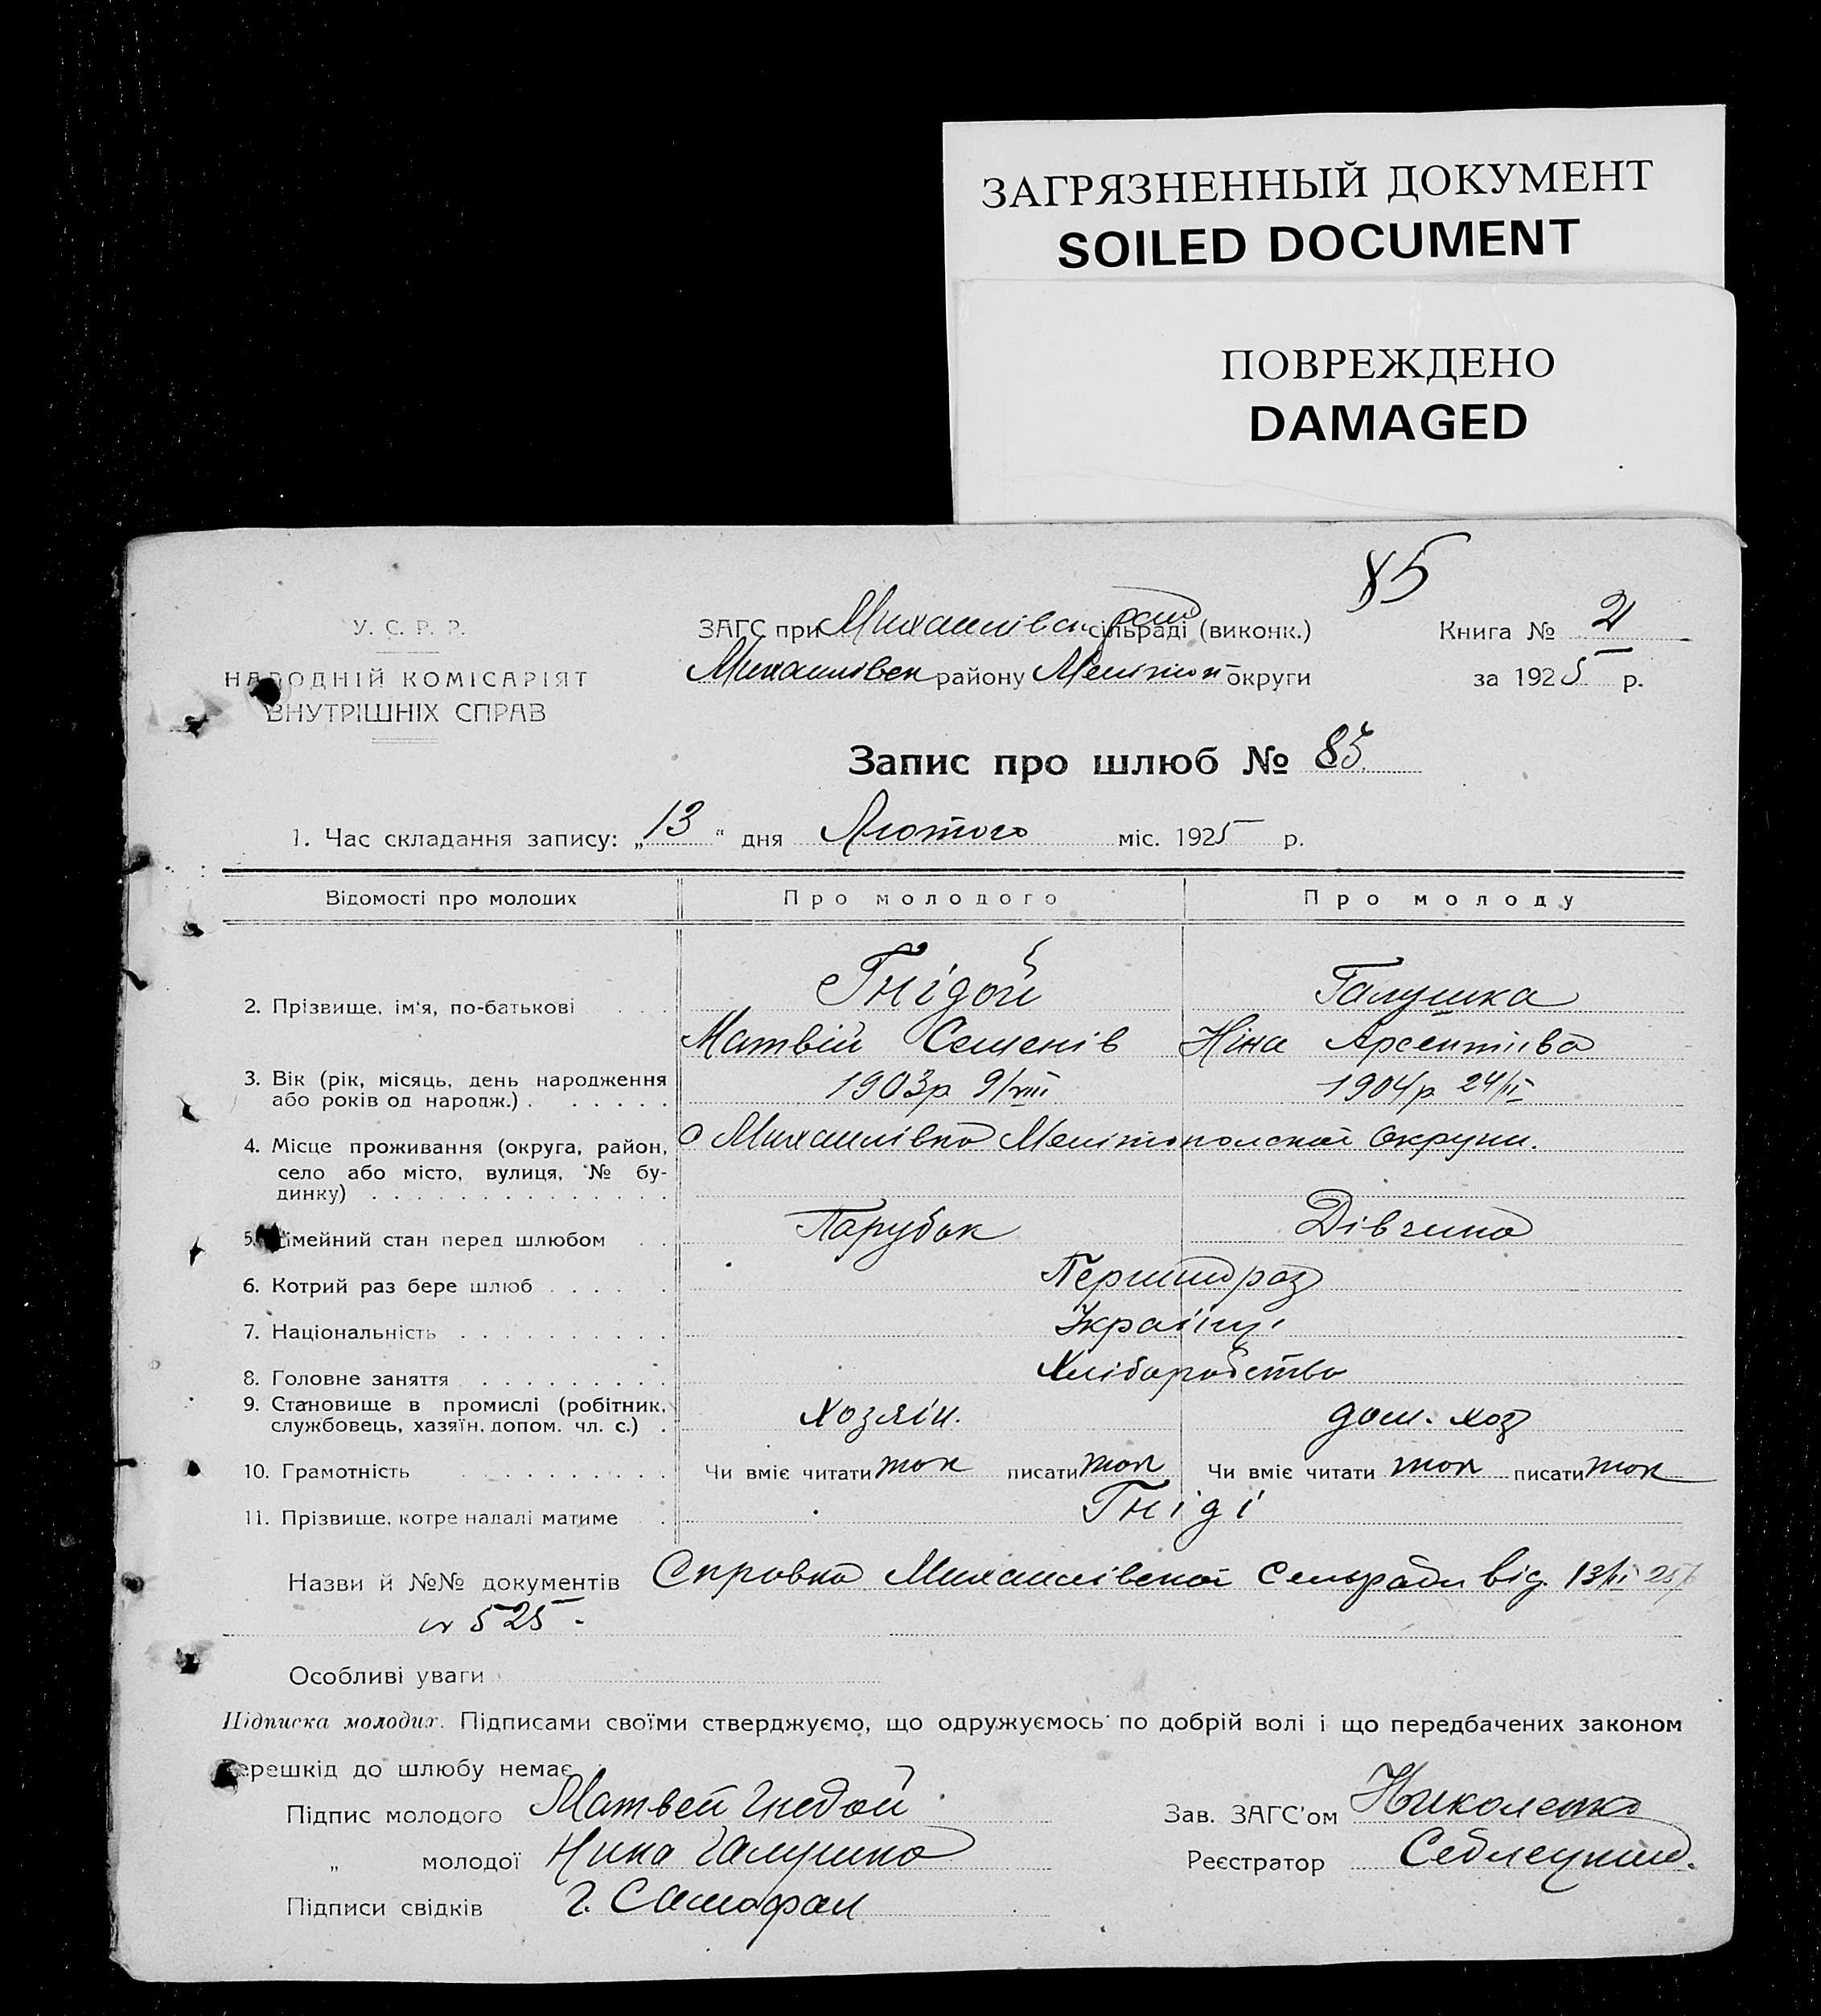 ЗАГРЯЗНЕННЫЙ ДОКУМЕНТ
SOILED DOCUMENT
ПОВРЕЖДЕНО
DAMAGED
85
У. С. Р. Р.
НАРОДНІЙ КОМІСАРІЯТ
ВНУТРІШНІХ СПРАВ
ЗАГС при Михайлівск. рай сільраді (виконк.)
Михайлівск району Мелітоп округи
Книга № 2
за 1925 р.
Запис про шлюб № 85
1. Час складання запису: „13“ дня Лютого міс. 1925 р.
Відомості про молодих Про молодого Про молоду
2. Прізвище, ім‘я, по-батькові Гнідой Галушка
Матвій Семенів Ніна Арсентіїва
3. Вік (рік, місяць, день народження 1903р 9/VIII 1904р 24/II
або років од народж.)
4. Місце проживання (округа, район, с Михайлівка Мелітопольскої Округи.
село або місто, вулиця, № бу-
динку)
5. Сімейний стан перед шлюбом Парубок Дівчина
6. Котрий раз бере шлюб Перший раз
7. Національність Українці
8. Головне заняття Хліборобство
9. Становище в промислі (робітник, Хозяїн. дом. хоз
службовець, хазяїн, допом. чл. с.)
10. Грамотність Чи вміє читати так писати так Чи вміє читати так писати так
11. Прізвище, котре надалі матиме Гніді
Назви й №№ документів Справка Михайлівскої Сельради від 13/II 25р
№ 525.
Особливі уваги
Підписка молодих. Підписами своїми стверджуємо, що одружуємось по добрій волі і що передбачених законом
перешкід до шлюбу немає
Підпис молодого Матвей Гнедой
„ молодої Нина Галушка
Підписи свідків Г. Самофал
Зав. ЗАГС'ом Николенко
Реєстратор